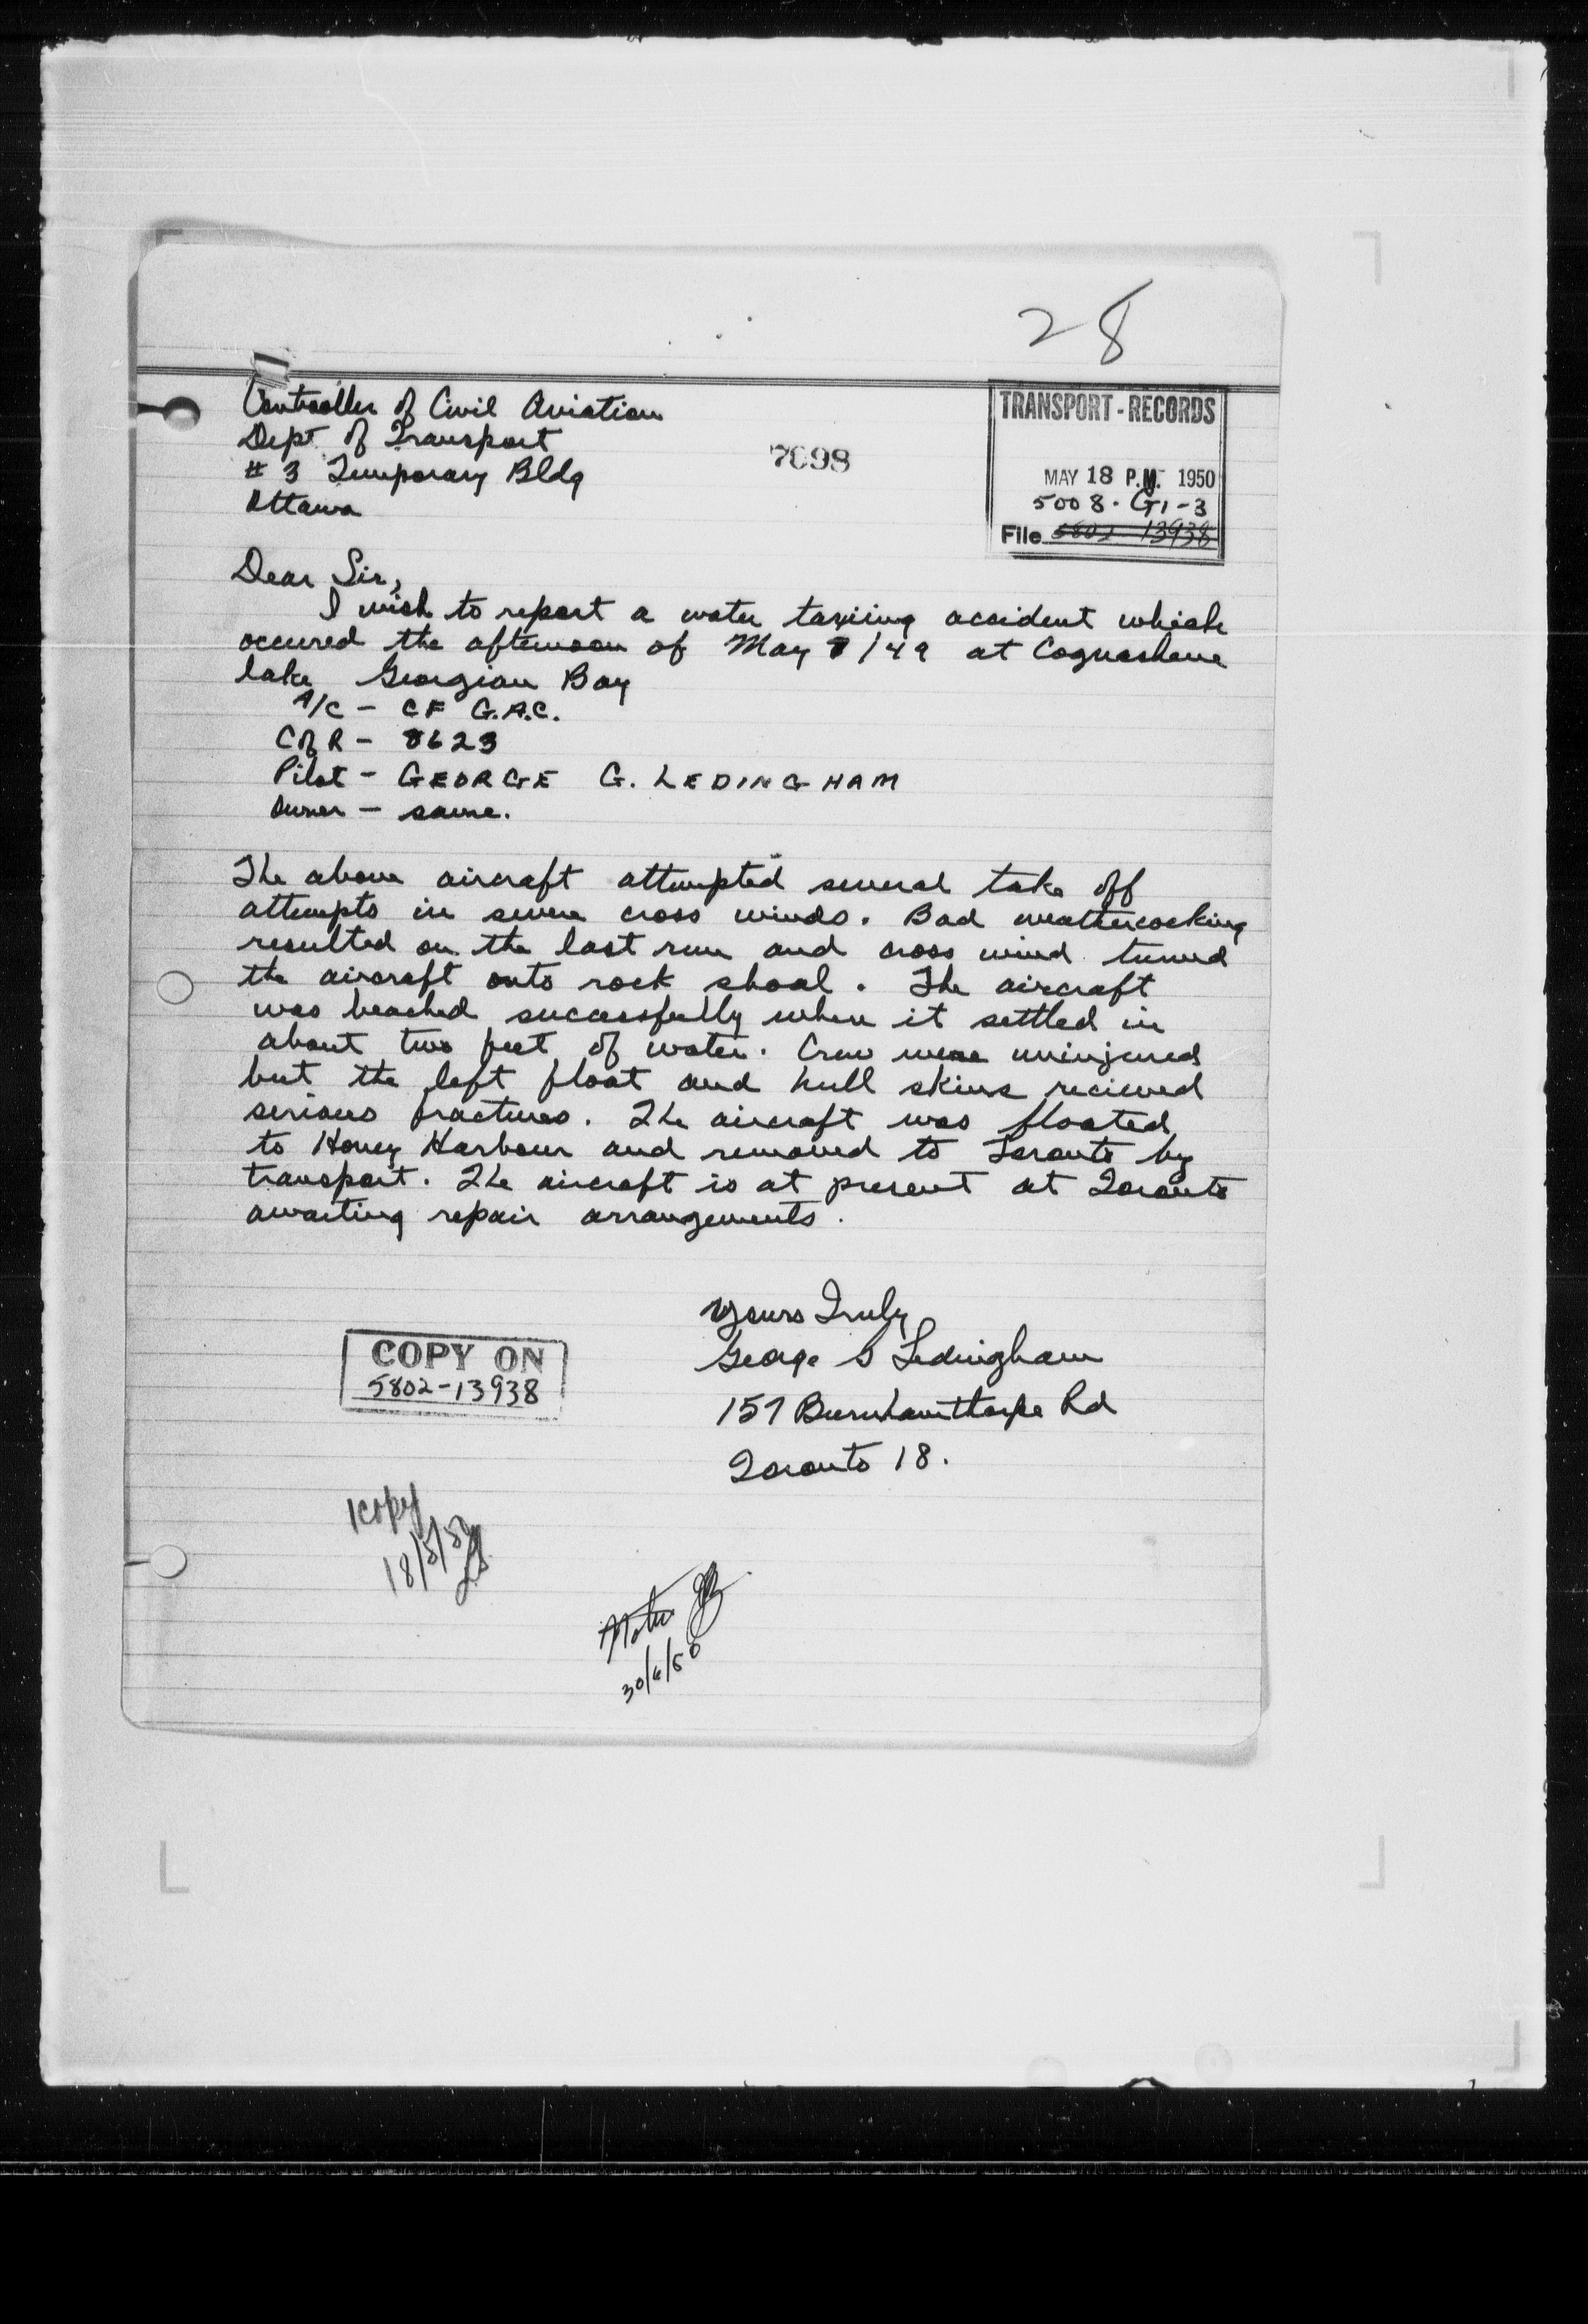 28
Controller of Civil Aviation
Dept of Transport
# 3 Temporary Bldg
Ottawa
7098
TRANSPORT - RECORDS
MAY 18 P.M. 1950
5008 - G1-3
File 5802 13938
Dear Sir,
I wish to report a water taxiing accident which
occured the afternoon of May 7/49 at Cognashene
lake Georgian Bay
A/C - CF G.A.C.
C of R - 8623
Pilot - GEORGE G. LEDINGHAM
Owner - same.
The above aircraft attempted several take off
attempts in severe cross winds. Bad weathercocking
resulted on the last run and cross wind turned
the aircraft onto rock shoal. The aircraft
was beached successfully when it settled in
about two feet of water. Crew were uninjured
but the left float and hull skins recieved
serious fractures. The aircraft was floated
to Honey Harbour and removed to Toronto by
transport. The aircraft is at present at Toronto
awaiting repair arrangements.
Yours Truly
George G Ledingham
157 Burnhamthorpe Rd
Toronto 18.
COPY ON
5802-13938
1 copy
18/5/50
30/6/50